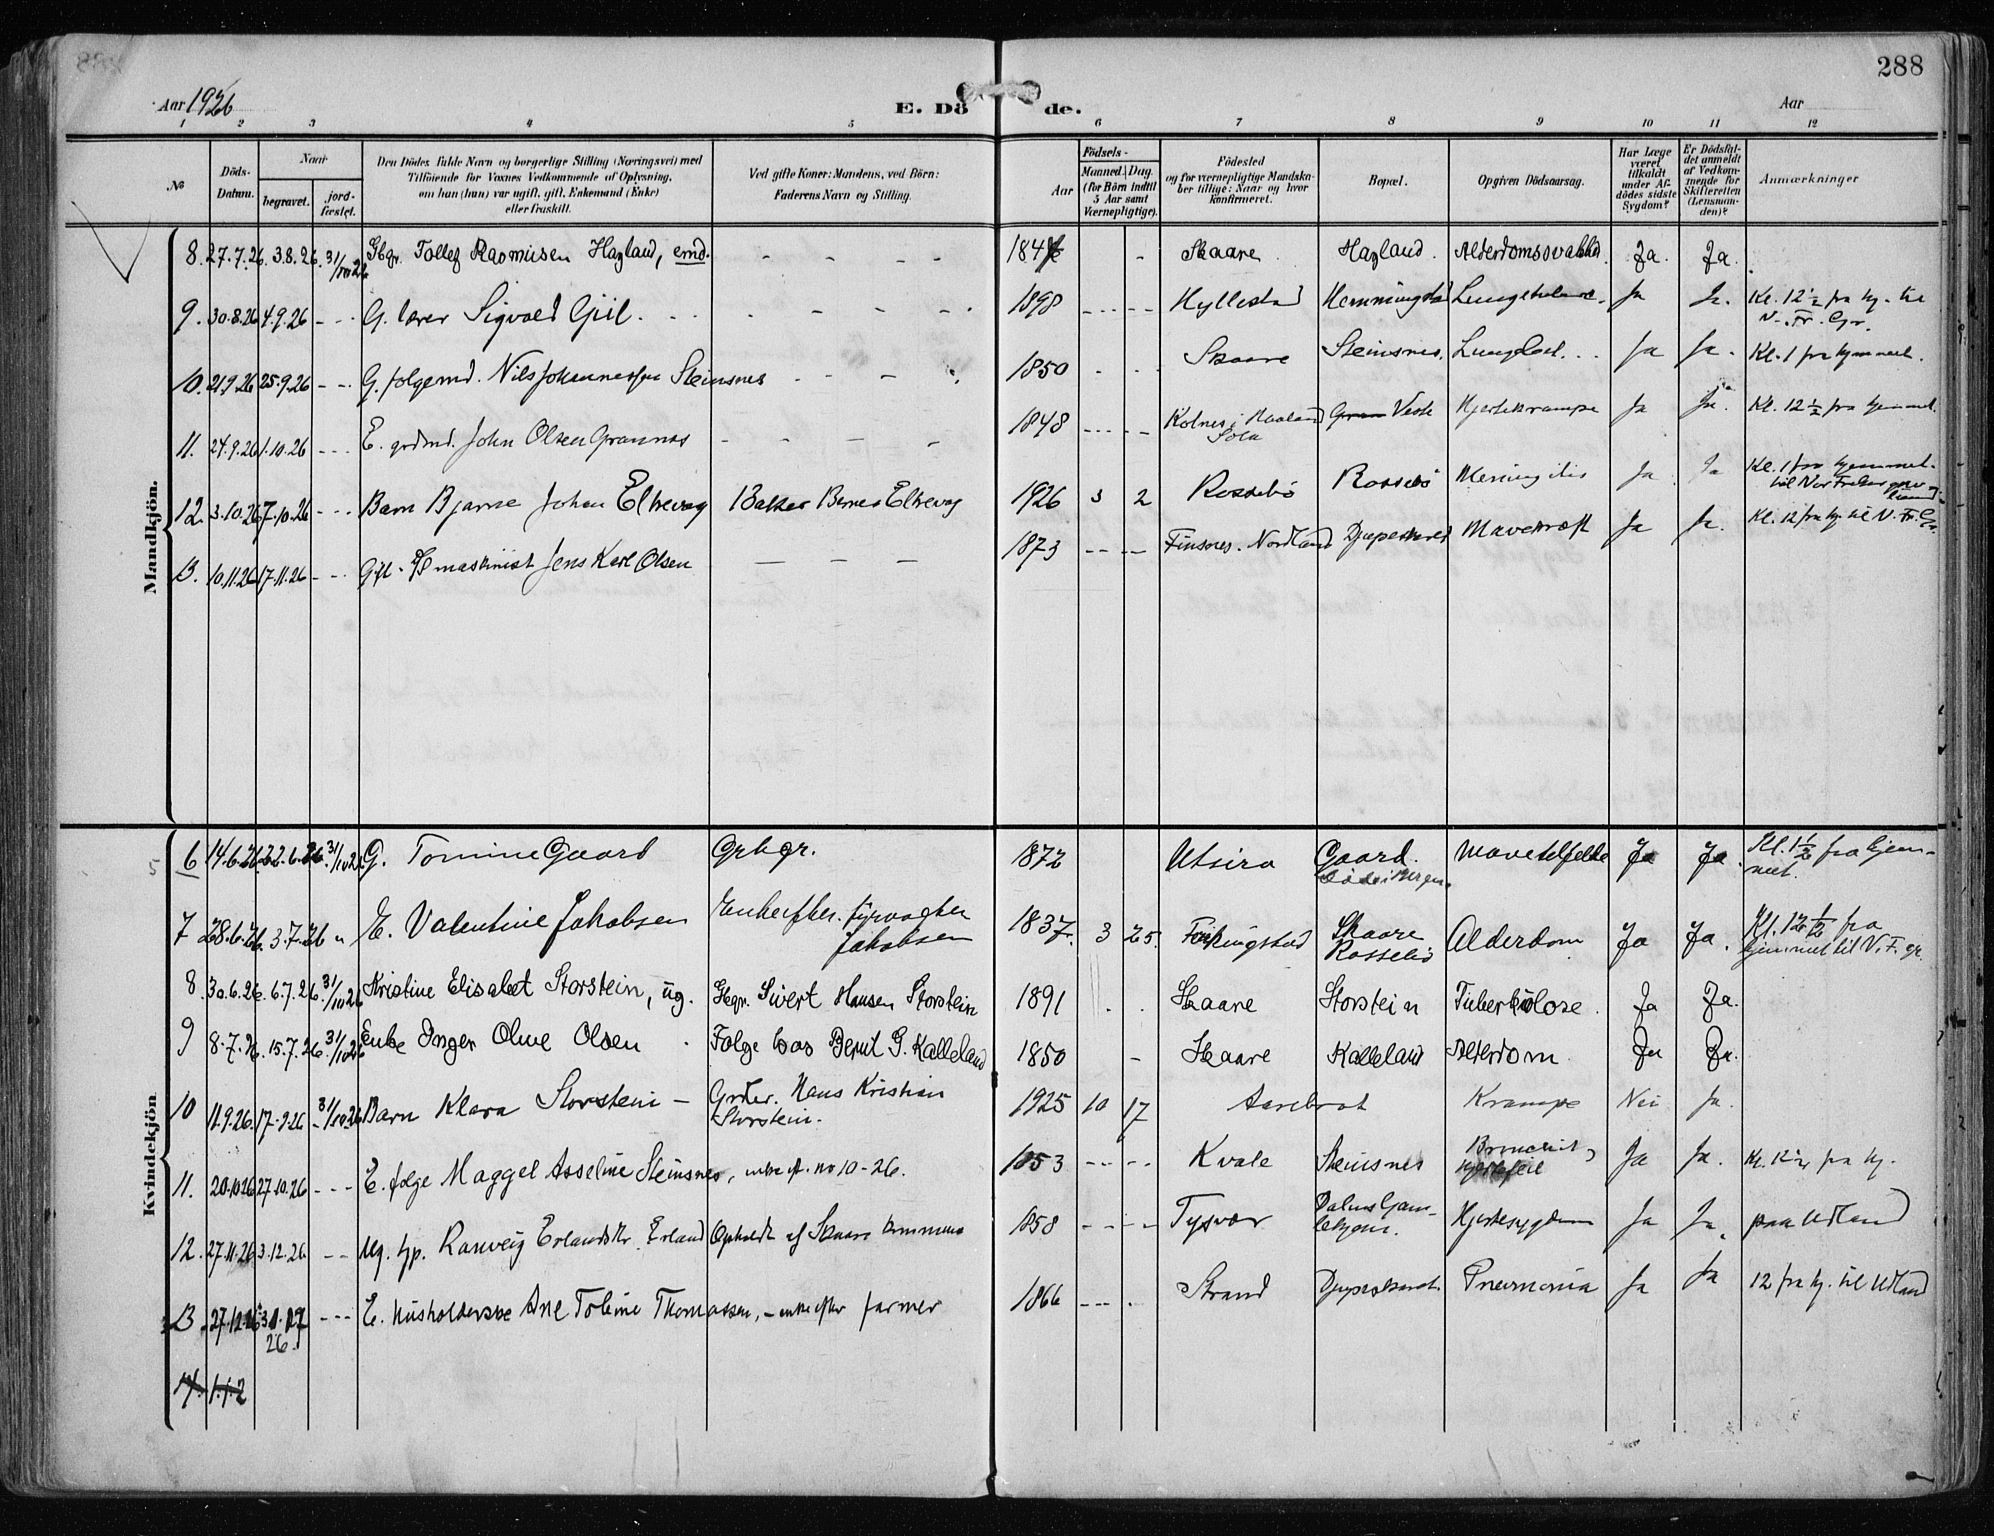 288
Aar 1926
E. Dö de.
Aar
1 2 3 4 5 6 7 8 9 10 11 12
№
Döds-
Datum.
Naar
begravet.
jord-
fæstet.
Den Dödes fulde Navn og borgerlige Stilling (Næringsvei) med
Tilföiende for Voxnes Vedkommende af Oplysning,
om han (hun) var ugift, gift, Enkemand (Enke)
eller fraskilt.
Ved gifte Koner: Mandens, ved Börn:
Faderens Navn og Stilling.
Aar
Födsels-
Maaned. Dag.
(for Börn indtil
5 Aar samt
Værnepligtige).
Födested
og for værnepligtige Mandska-
ber tillige: Naar og hvor
konfirmeret.
Bopæl.
Opgiven Dödsaarsag.
Har Læge
været
tilkaldt
under Af-
dödes sidste
Sygdom?
Er Dödsfal-
det anmeldt
af Vedkom-
mende for
Skifteretten
(Lensman-
den)?
Anmærkninger
Mandkjön.
8. 27.7.26. 3.8.26. 31/10 26 Gbgr. Rasmusen Hagland, emd. - - - - 184 - Skaare Hagland. Ja. Ja.
9. 30.8.26 4.9.26 - - G. lærer Sigvald Giil. - - - - 1898 - - - - Hyllestad Hemmingstad Ja Ja. Kl. 12 1/2 fra hj. til
N. Fr. Gr.
10. 21.9.26 25.9.26 - - G. folgemd. Nils Johannessen Steinsnes - - - 1850 - - - Skaare Steinsnes. Ja Ja. Kl. 1 fra hjemmet.
11. 24.9.26 1.10.26 - - - E. grdmd. John Olsen Grannes - - - - 1848 - - - - - Kolnes i Haaland
Sola
Veste Hjertekrampe Ja Ja. Kl. 12 1/2 fra hjemmet.
12. 3.10.26 7.10.26 - - Barn Bjarne Johan Elhevag Baker Elhevag 1926 3 2 Rossebö Rossebö Meningitis Ja Ja Kl. 1 fra hjemmet
13. 10.11.26 17.11.26 - - Gift maskinist Jens Karl Olsen - - - 1873 - - - - Finsnes. Nordland Djupeskared Mavekræft Ja Ja. Kl. 12 fra hj. til N. Fr. Gr.
Kvindekjön
5
6 14.6.26. 22.6.26. 31/10 26 G. Tomine Gaard Grbgr. 1872 Utsira Gaard.
Död i Bergen.
Ja Ja. Kl. 1 1/2 fra hjem-
met.
7 28.6.26. 3.7.26 " E. Valentine Jakobsen Enke efter. fyrvagter
Jakobsen
1837. 3 25. Ferkingstad Skaare
Rossebö
Alderdom Ja Ja. Kl. 12 1/2 fra
hjemmet til N. F. gr.
8. 30.6.26. 6.7.26. 31/10 26 Kristine Elisabet Storstein, ug. Gbgr. Sivert Hansen Storstein 1891 . . Skaare Storstein Tuberkulose. Ja Ja.
9 8.7.26. 15.7.26. 31/10 26 Enke Inger Oline Olsen . Folge hos Bernt G. Kalleland 1850 - Skaare Kalleland Alderdom. Ja Ja.
10 11.9.26. 17.9.26 31/10 26 Barn Klara Storstein - Grder. Hans Kristian
Storstein.
1925 10 17 Aarebrot Krampe Nei Ja.
11. 20.10.26 27.10.26 - - - E. folge Maggel Asseline Steinsnes, enke ef. no 10-26. 1853 - - - - Kvale Steinsnes Bronchit,
hjertefeil
Ja Ja. Kl. 12 1/2 fra hj.
12. 27.11.26 3.12.26 - - Ug. hp. Ranveig Erlandsdtr. Erland Opholdt af Skaare kommune 1858 - - - - Tysvær Dalens Gam-
lehjem.
Hjertesygdom Ja Ja. paa Udland
13. 27.12.26 31.12
26.
- - - E. husholderske Ane Toline Thomassen, - enke efter farmer 1866 - - - . Strand Djupeskard. Pneumonia Ja Ja 12 fra hj. til Udland
14. 1.1.2